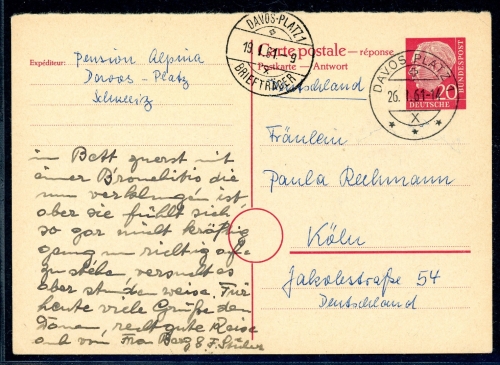 Expéditeur: Pension Alpina
Davos - Platz
Schweiz
Carte postale – réponse
Postkarte — Antwort
Deutschland
DAVOS-PLATZ 1
19. I. 61-9
BRIEFTRÄGER
DAVOS PLATZ
26. I. 61-1
X
20
DEUTSCHE
BUNDESPOST
Fräulein
Paula
Köln
Jakobstraße 54
Deutschland
im Bett zuerst mit
einer Bronchitis die
nun verklungen ist
aber sie fühlt sich
so gar nicht kräftig
genug um richtig auf-
zustehen, versucht es
aber stundenweise. Für
heute viele Grüße den
Damen, recht gute Reise
auch von Frau Berg &